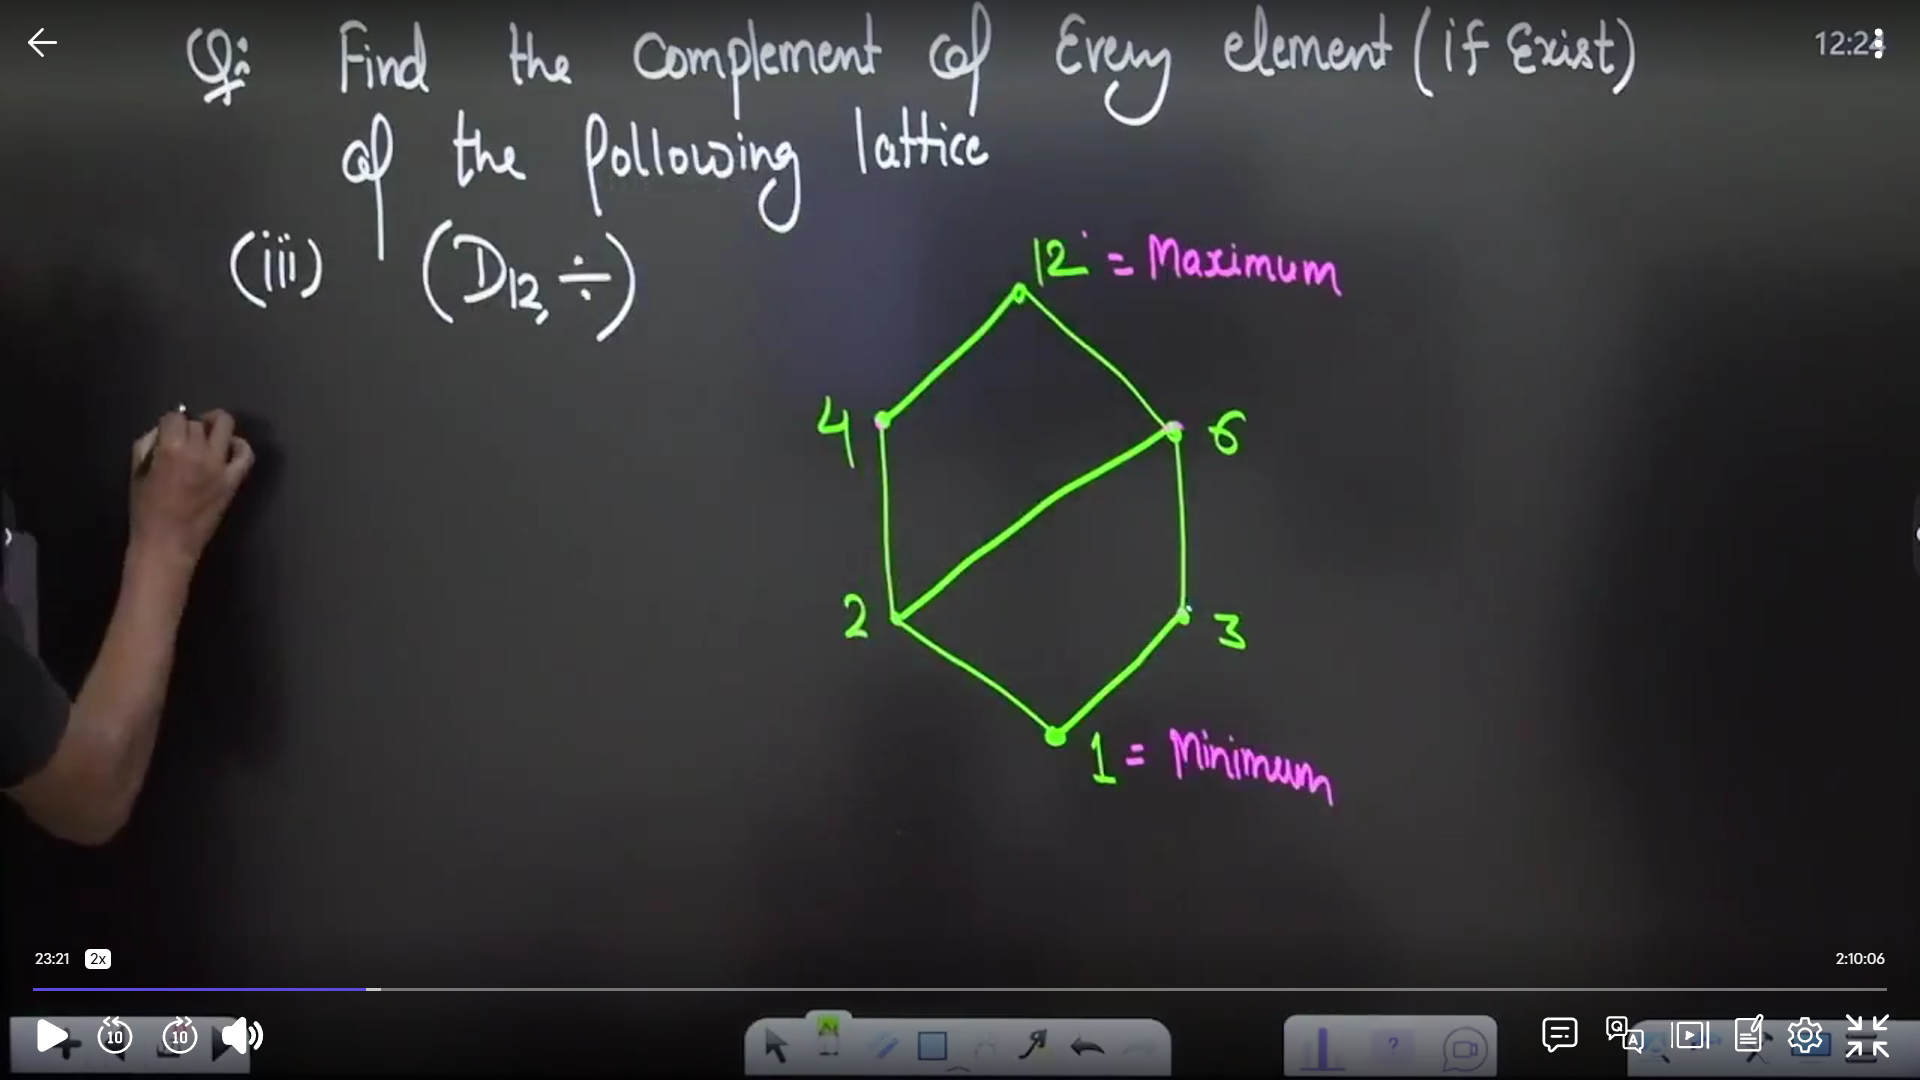 12:24
Q: Find the Complement of Every element (if Exist)
of the following lattice
(iii) (D12, ÷)
12 = Maximum
4
6
2
3
1 = Minimum
23:21 2x
2:10:06
10 10
Q A
?